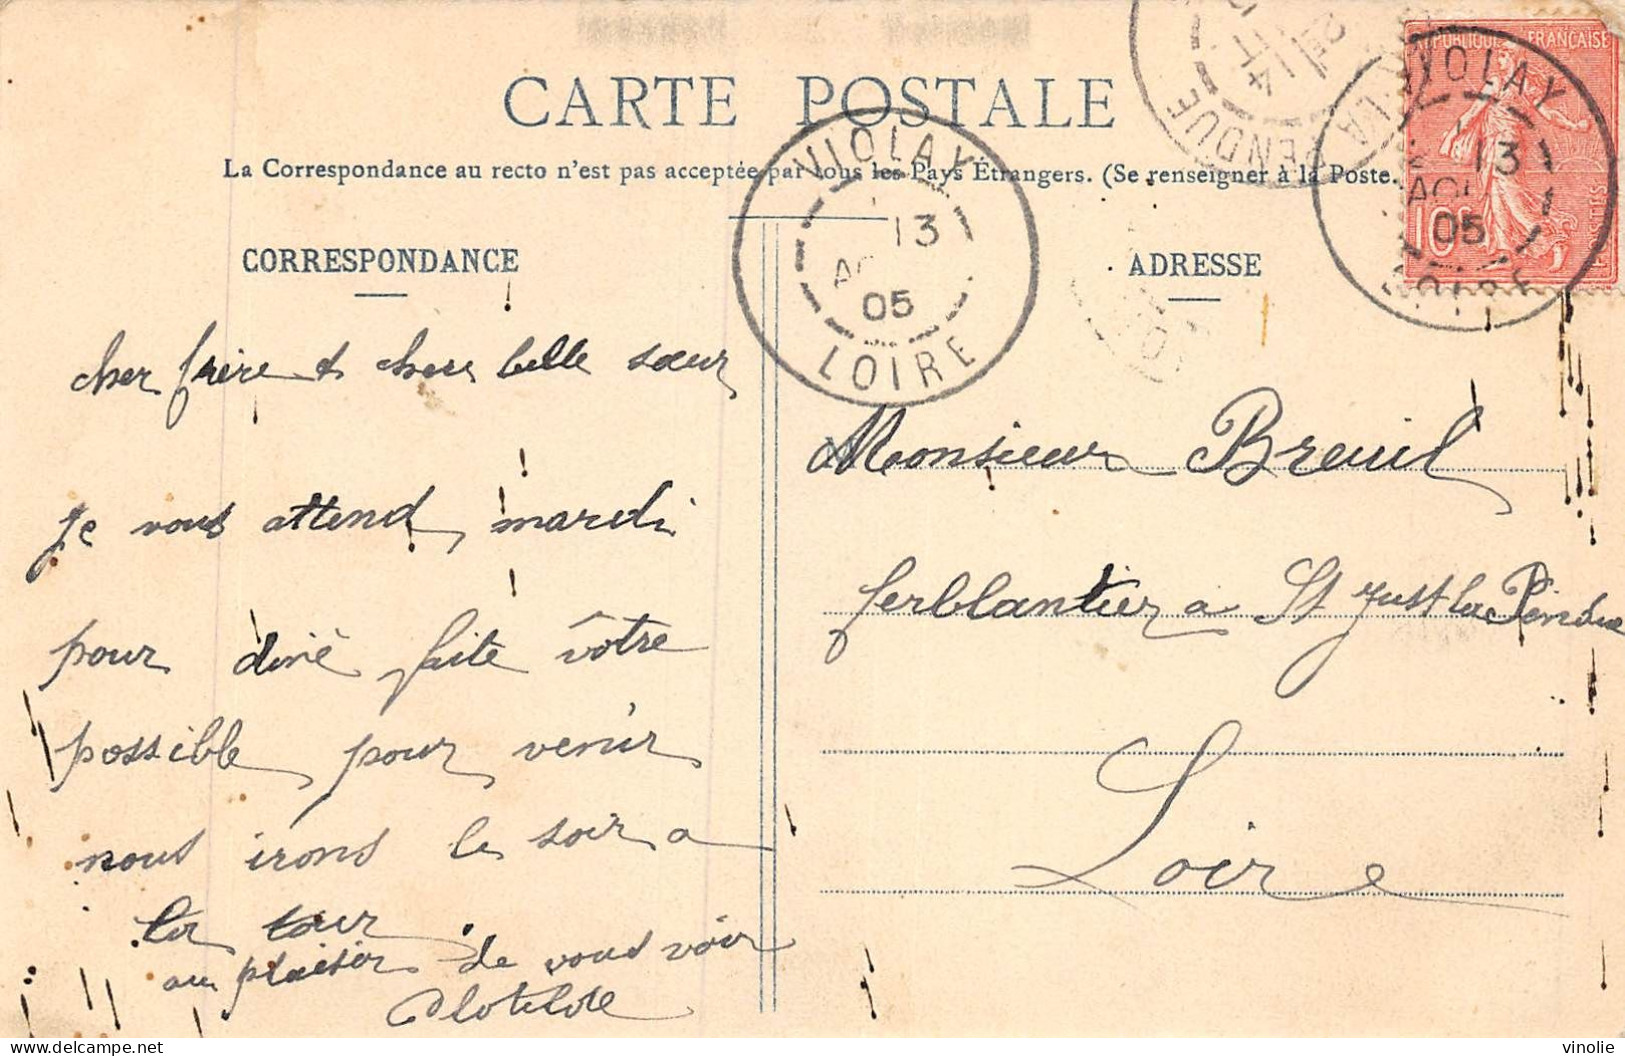 CARTE POSTALE
La Correspondance au recto n'est pas acceptée par tous les Pays Étrangers. (Se renseigner à la Poste.
CORRESPONDANCE
cher frère et chere belle sœur
je vous attend mardi
pour diné faite vôtre
possible pour venir
nous irons le soir a
la tour
au plaisir de vous voir
Clotilde
ADRESSE
Monsieur Breuil
ferblantier a St Just la Pendue
Loire
VIOLAY
13
AO
05
LOIRE
RÉPUBLIQUE FRANÇAISE
10
POSTES
VIOLAY
13
AOU
05
LOIRE
LA PENDUE
14
05
delcampe.net
vinolie